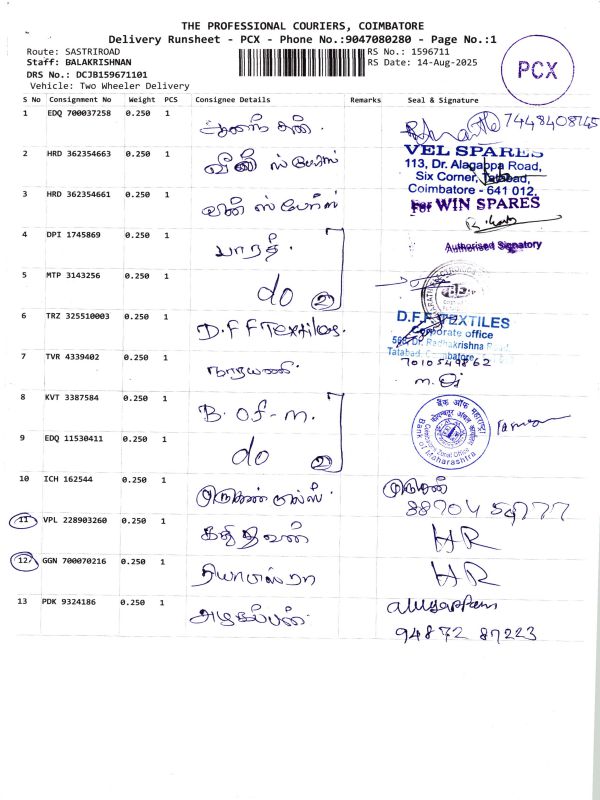 THE PROFESSIONAL COURIERS, COIMBATORE
Delivery Runsheet - PCX - Phone No.:9047080280 - Page No.:1
Route: SASTRIROAD
RS No.: 1596711
Staff: BALAKRISHNAN
RS Date: 14-Aug-2025
DRS No.: DCJB159671101
Vehicle: Two Wheeler Delivery
PCX
S No Consignment No Weight PCS Consignee Details Remarks Seal & Signature
1 EDQ 700037258 0.250 1 7448408745
2 HRD 362354663 0.250 1
VEL SPARES
113, Dr. Alagappa Road,
Six Corner, Tatabad,
Coimbatore - 641 012.
3 HRD 362354661 0.250 1
For WIN SPARES
4 DPI 1745869 0.250 1 பாரதி.
Authorised Signatory
5 MTP 3143256 0.250 1 do
6 TRZ 325510003 0.250 1 D.F.F Textiles.
D.F.F. TEXTILES
Corporate office
Dr. Radhakrishna Road,
Tatabad, Coimbatore
7 TVR 4339402 0.250 1 நாராயணி. 7010549862
8 KVT 3387584 0.250 1 B. of. m.
बैंक ऑफ महाराष्ट्र
Coimbatore Zonal Office
Bank of Maharashtra
9 EDQ 11530411 0.250 1 do
10 ICH 162544 0.250 1
11 VPL 228903260 0.250 1 கதிரவன் HR
12 GGN 700070216 0.250 1 HR
13 PDK 9324186 0.250 1 அழகப்பன்.
94872 87223